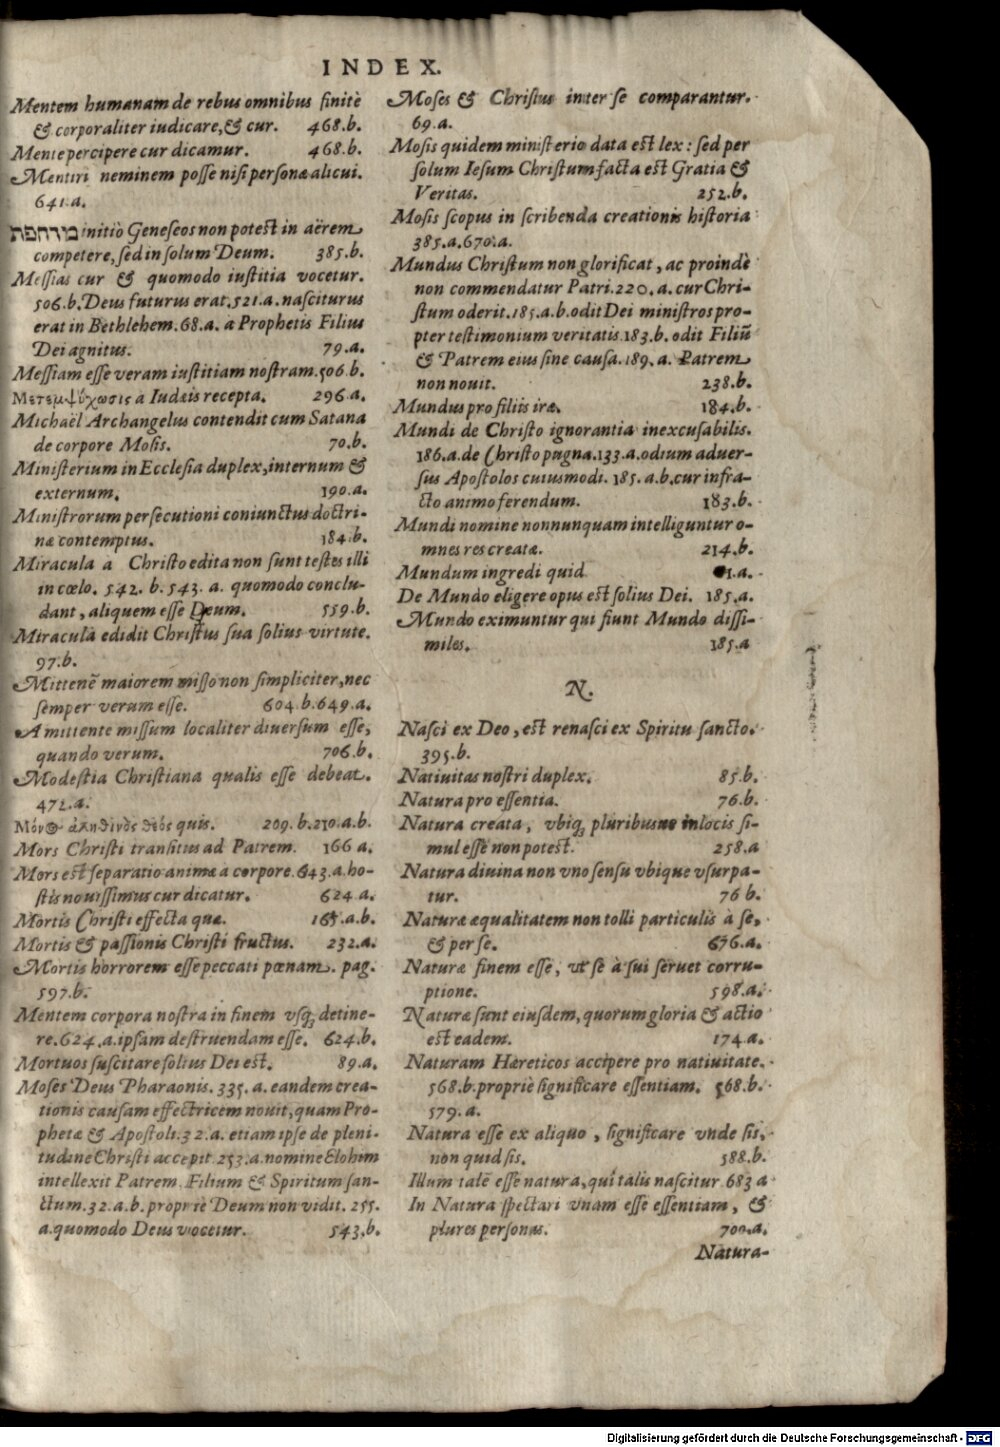 INDEX.
Mentem humanam de rebus omnibus finitè
& corporaliter iudicare, & cur. 468.b.
Mente percipere cur dicamur. 468.b.
Mentiri neminem posse nisi personæ alicui.
641.a.
מרחפת initiò Geneseos non potest in aërem
competere, sed in solum Deum. 385.b.
Messias cur & quomodo iustitia vocetur.
506.b. Deus futurus erat. 521.a. nasciturus
erat in Bethlehem. 68.a. a Prophetis Filius
Dei agnitus. 79.a.
Messiam esse veram iustitiam nostram. 506.b.
Μετεμψύχωσις a Iudæis recepta. 296.a.
Michaël Archangelus contendit cum Satana
de corpore Mosis. 70.b.
Ministerium in Ecclesia duplex, internum &
externum. 190.a.
Ministrorum persecutioni coniunctus doctri-
næ contemptus. 184.b.
Miracula a Christo edita non sunt testes illi
in cœlo. 542. b. 543. a. quomodo conclu-
dant, aliquem esse Deum. 559.b.
Miracula edidit Christus sua solius virtute.
97.b.
Mittenē maiorem misso non simpliciter, nec
semper verum esse. 604.b. 649.a.
A mittente missum localiter diuersum esse,
quando verum. 706.b.
Modestia Christiana qualis esse debeat.
472.a.
Μόνος ἀληθινὸς θεός quis. 209.b. 210.a.b.
Mors Christi transitus ad Patrem. 166 a.
Mors est separatio animæ a corpore. 643.a. ho-
stis nouissimus cur dicatur. 624 a.
Mortis Christi effecta quæ. 165.a.b.
Mortis & passionis Christi fructus. 232.a.
Mortis horrorem esse peccati pœnam. pag.
597.b.
Mentem corpora nostra in finem vsq; detine-
re. 624.a. ipsam destruendam esse. 624.b.
Mortuos suscitare solius Dei est. 89.a.
Moses Deus Pharaonis. 335.a. eandem crea-
tionis causam effectricem nouit, quam Pro-
phetæ & Apostoli. 32.a. etiam ipse de pleni-
tudine Christi accepit. 253.a. nomine Elohim
intellexit Patrem, Filium & Spiritum san-
ctum. 32.a.b. propriè Deum non vidit. 255.
a. quomodo Deus vocetur. 543.b.
Moses & Christus inter se comparantur.
69.a.
Mosis quidem ministerio data est lex: sed per
solum Iesum Christum facta est Gratia &
Veritas. 252.b.
Mosis scopus in scribenda creationis historia
385.a. 670.a.
Mundus Christum non glorificat, ac proindè
non commendatur Patri. 220.a. cur Chri-
stum oderit. 185.a.b. odit Dei ministros pro-
pter testimonium veritatis. 183.b. odit Filiũ
& Patrem eius sine causa. 189.a. Patrem
non nouit. 238.b.
Mundus pro filiis iræ. 184.b.
Mundi de Christo ignorantia inexcusabilis.
186.a. de Christo pugna. 133.a. odium aduer-
sus Apostolos cuiusmodi. 185.a.b. cur infra-
cto animo ferendum. 183.b.
Mundi nomine nonnunquam intelliguntur o-
mnes res creatæ. 214.b.
Mundum ingredi quid 1.a.
De Mundo eligere opus est solius Dei. 185.a.
Mundo eximuntur qui fiunt Mundo dissi-
miles. 185.a
N.
Nasci ex Deo, est renasci ex Spiritu sancto.
395.b.
Natiuitas nostri duplex. 85.b.
Natura pro essentia. 76.b.
Natura creata, vbiq; pluribusue in locis si-
mul esse non potest. 258.a
Natura diuina non vno sensu vbique vsurpa-
tur. 76 b.
Naturæ æqualitatem non tolli particulis à se,
& per se. 676.a.
Naturæ finem esse, vt se à sui seruet corru-
ptione. 598.a.
Naturæ sunt eiusdem, quorum gloria & actio
est eadem. 174.a.
Naturam Hæreticos accipere pro natiuitate.
568.b. propriè significare essentiam. 568.b.
579.a.
Natura esse ex aliquo, significare vnde sis,
non quid sis. 588.b.
Illum talē esse natura, qui talis nascitur. 683 a
In Natura spectari vnam esse essentiam, &
plures personas. 700.a.
Natura-
Digitalisierung gefördert durch die Deutsche Forschungsgemeinschaft - DFG